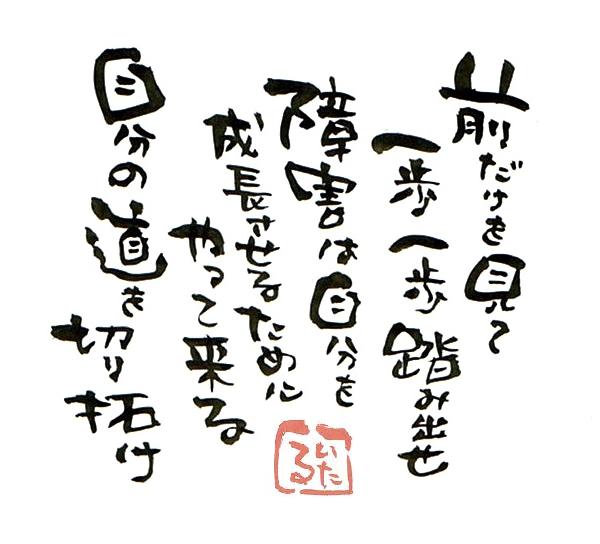 前だけを見て
一歩一歩踏み出せ
障害は自分を
成長させるために
やって来る
自分の道を
切り拓け
いたる